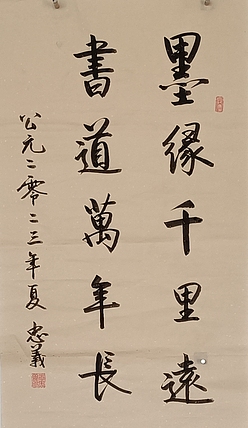 墨緣千里遠
書道萬年長
公元二零二三年夏 忠義